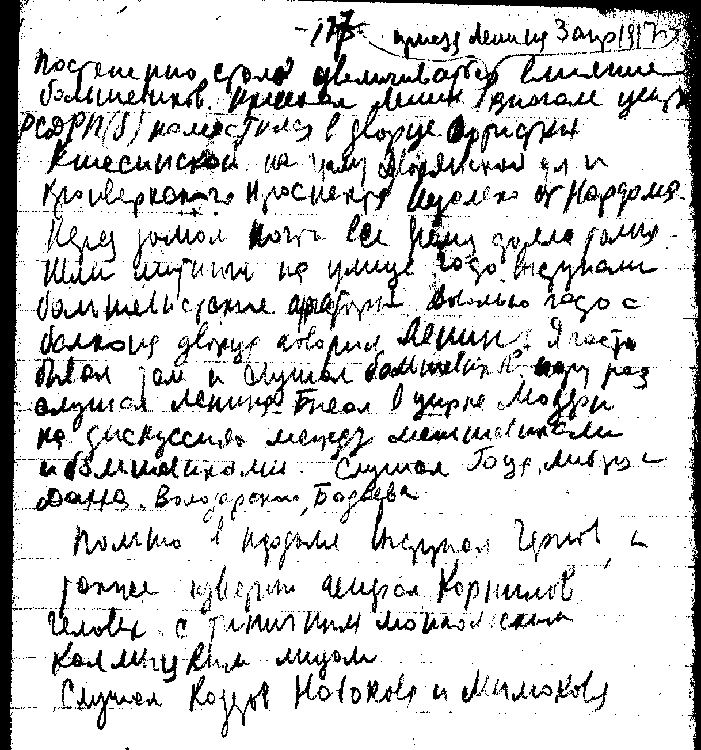 -177- приезд Ленина 3 апр 1917 г
Постепенно стало увеличиваться влияние
большевиков. Приехал Ленин
РСДРП(б) поместился в дворце
Кшесинской на углу Дворянской ул и
Кронверкского проспекта недалеко от Нардома.
Перед домом почти все время толпа
Шли митинги на улице
большевистские ораторы с
балкона дворца говорил Ленин. Я часто
бывал там и слушал большевиков пару раз
слушал Ленина. Бывал в цирке Модерн
на дискуссиях между меньшевиками
и большевиками. Слушал Гоца, Либера и
Дана. Володарского, Бадаева
Помню в Нардоме выступал Чернов, и
также генерал Корнилов,
человек с типичным монгольским
калмыцким лицом
Слушал Набокова и Милюкова